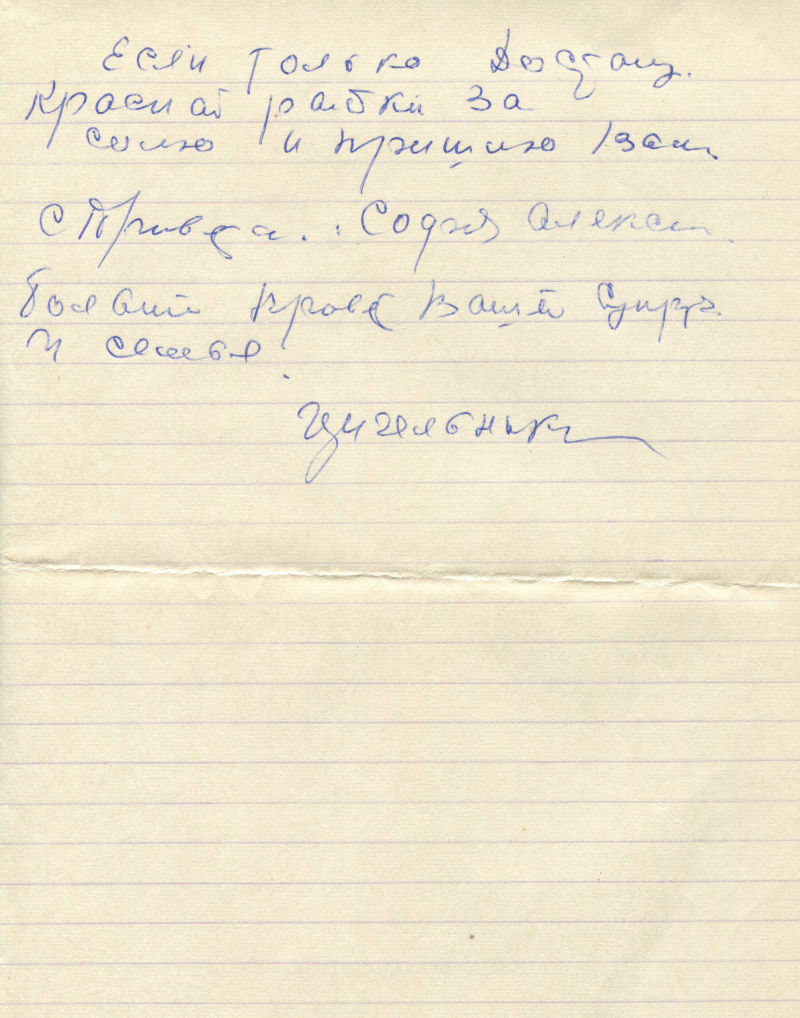 Если только Достану.
Красной рыбки за
солю и пришлю Вам.
С Приве та. : Софья Алекс
Большой Прове Вашей Супр.
и семье.
Цигельник